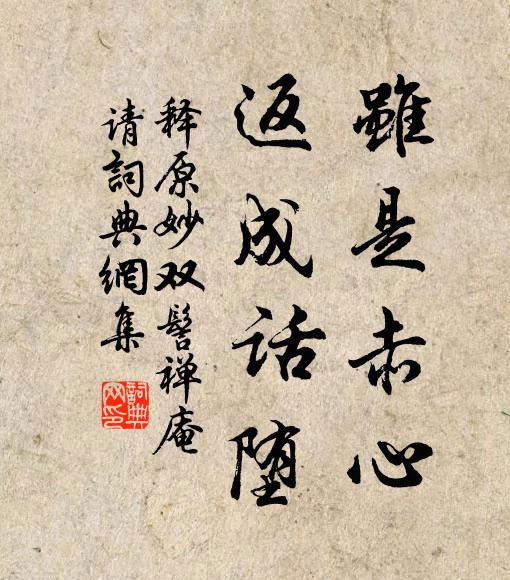 雖是赤心
返成话堕
释原妙双髻禅庵
请詞典網集
詞典
网印